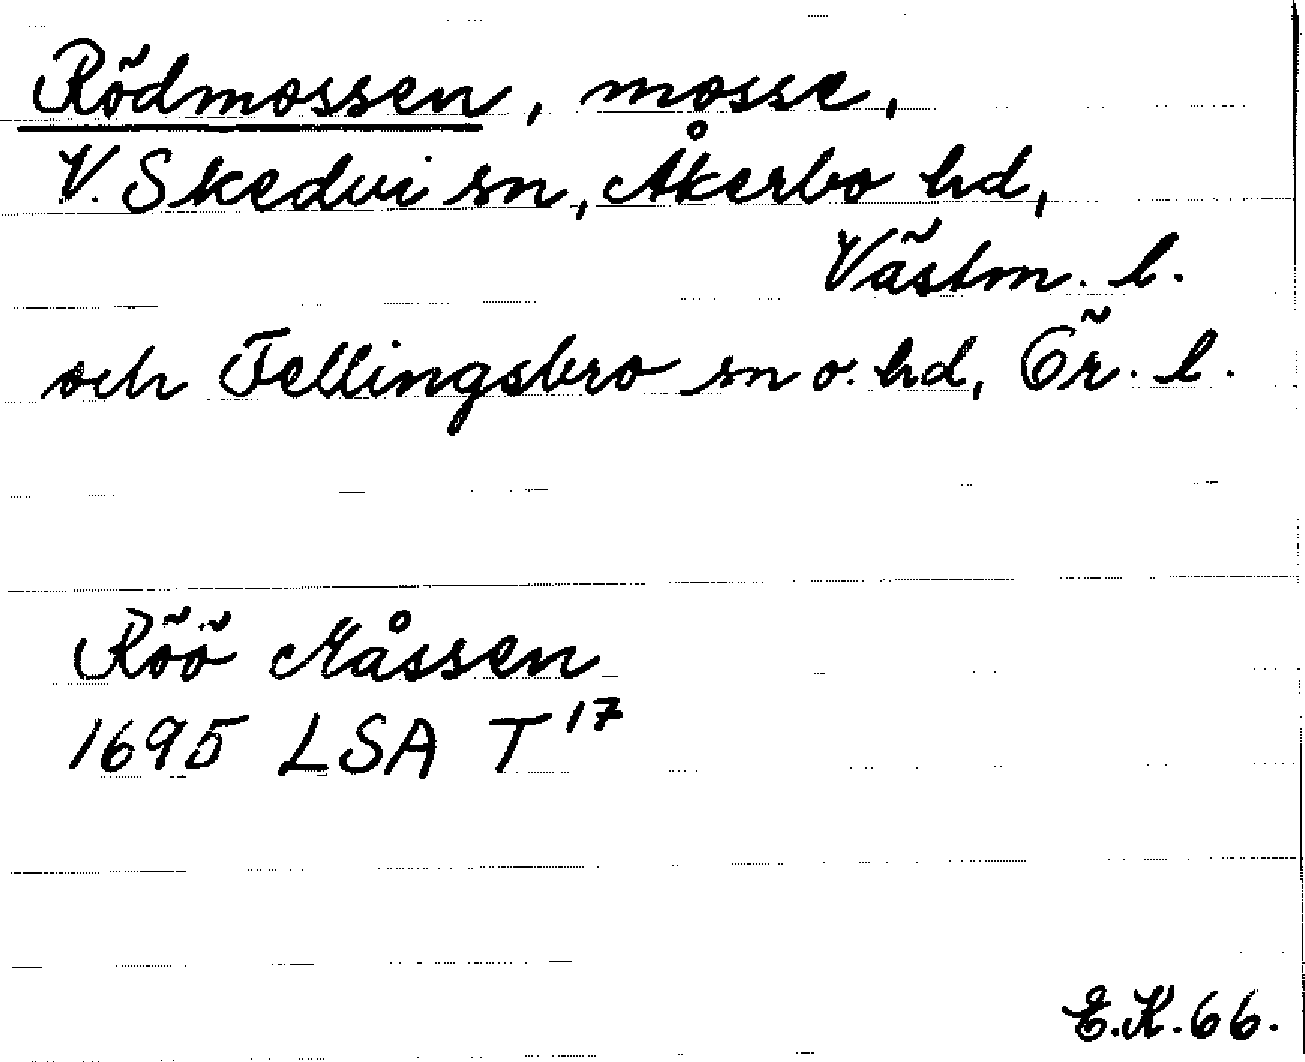 Rödmossen, mosse,
V. Skedvi sn, Åkerbo hd,
Västm. l.
och Fellingsbro sn o. hd, Ör. l.
Röö Måssen
1695 LSA T 17
E.K. 66.